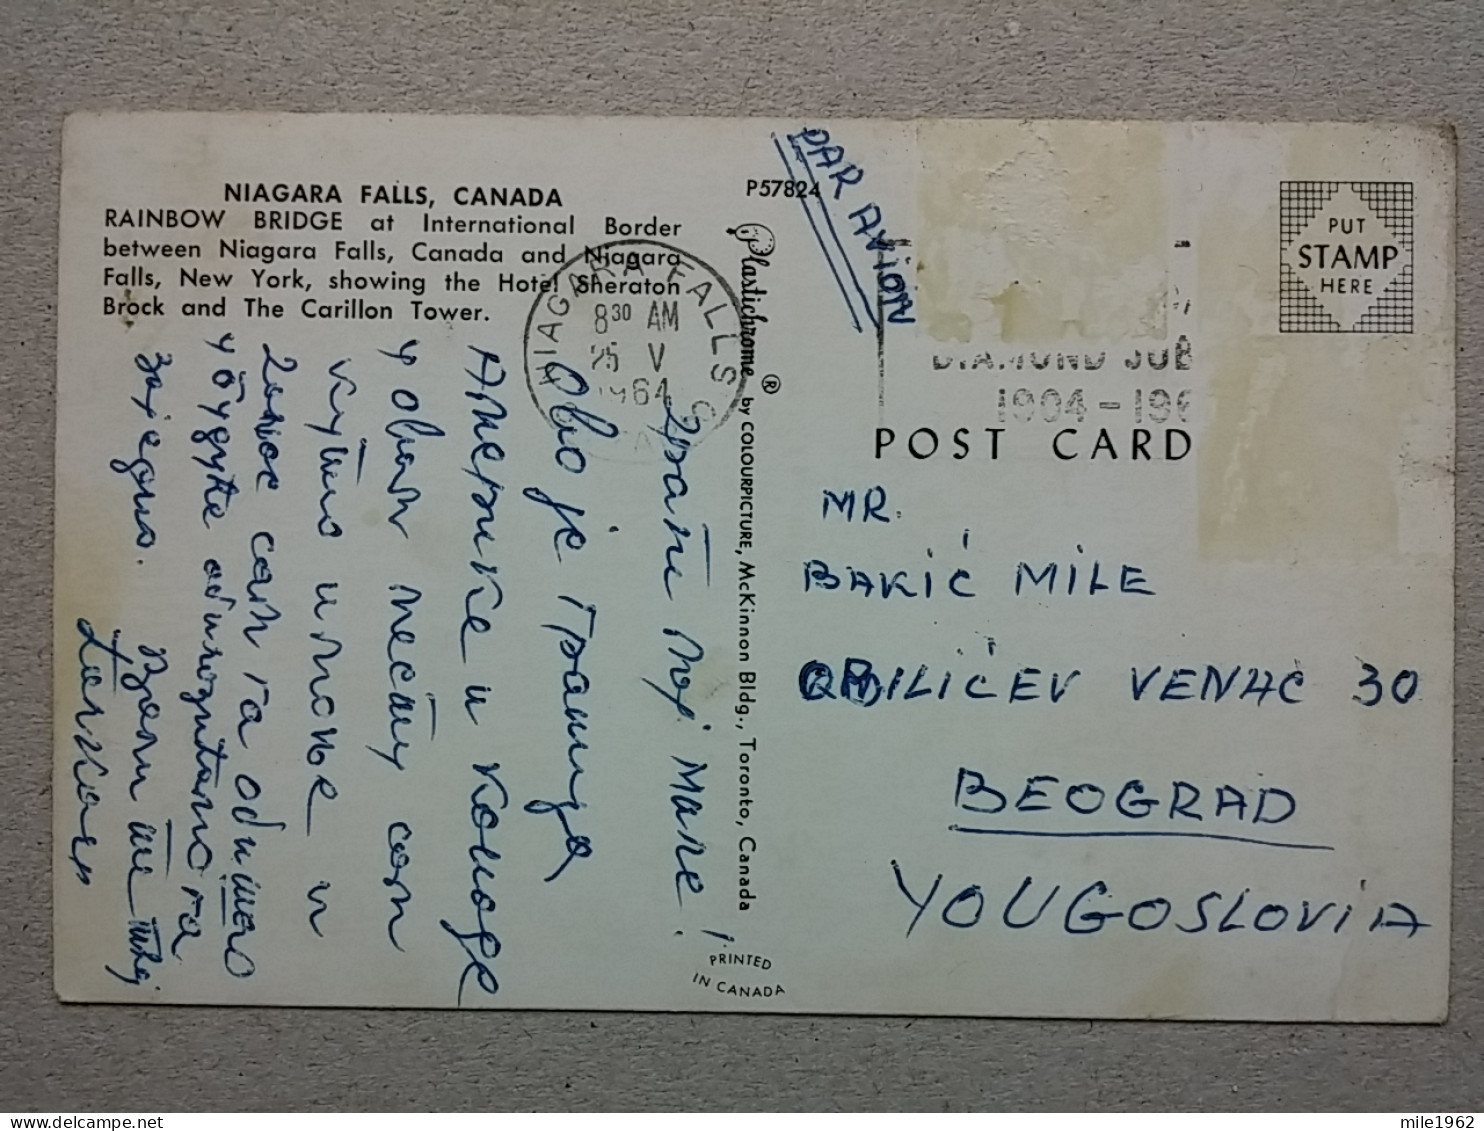 NIAGARA FALLS, CANADA
RAINBOW BRIDGE at International Border
between Niagara Falls, Canada and Niagara
Falls, New York, showing the Hotel Sheraton
Brock and The Carillon Tower.
P57824
PAR AVION
NIAGARA FALLS
8 30 AM
25 V
1964
DIAMOND JUB
1904 - 196
PUT
STAMP
HERE
POST CARD
Plastichrome ® by COLOURPICTURE, McKinnon Bldg., Toronto, Canada
PRINTED
IN CANADA
Драги мој Миле!
Ово је граница
Америке и Канаде
у овом месту сам
и
сам га
у будуће га
заједно.
Воли те твој
MR.
BAKIĆ MILE
OBILIĆEV VENAC 30
BEOGRAD
YOUGOSLOVIA
mile1962